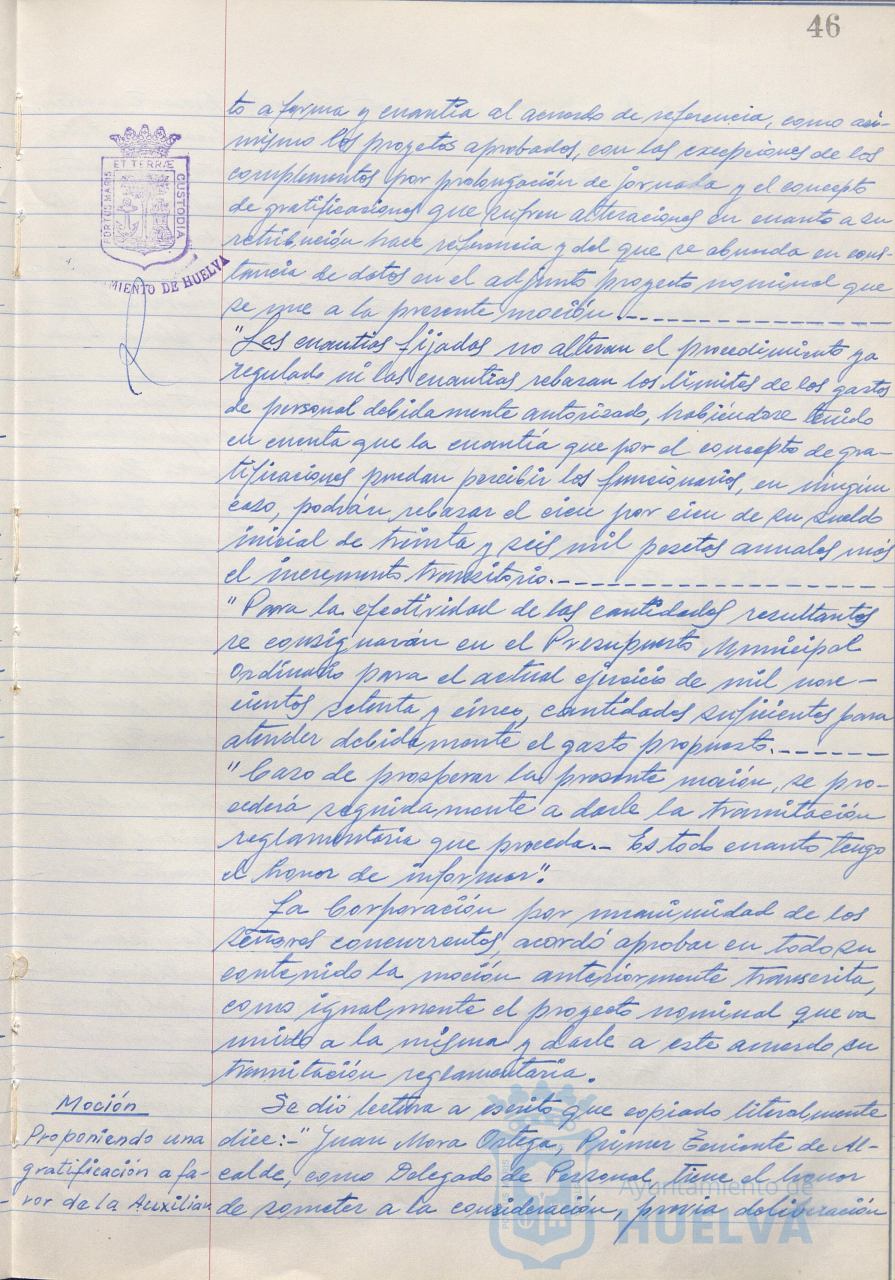 46
ET TERRÆ
PORTUS MARIS
CUSTODIA
MIENTO DE HUELVA
to a forma y cuantía al acuerdo de referencia, como asi-
mismo los proyetos aprobados, con las excepciones de los
complementos por prolongación de jornada y el concepto
de gratificaciones que sufren alteraciones en cuanto a su
retribución hace referencia y del que se abunda en cons-
tancia de datos en el adjunto proyecto nominal que
se une a la presente moción.-
"Las cuantias fijadas no alteran el procedimiento ya
regulado ni las cuantias rebasan los límites de los gastos
de personal debidamente autorizado, habiéndose tenido
en cuenta que la cuantía que por el concepto de gra-
tificaciones puedan percibir los funcionarios, en ningún
caso, podrán rebasar el cien por cien de su sueldo
inicial de treinta y seis mil pesetas anuales más
el incremento transitorio.-
"Para la efectividad de las cantidades resultantes
se consignarán en el Presupuesto Municipal
Ordinario para el actual ejercicio de mil nove-
cientos setenta y cinco, cantidades suficientes para
atender debidamente el gasto propuesto.-
"Caso de prosperar la presente moción, se pro-
cederá seguidamente a darle la tramitación
reglamentaria que proceda.- Es todo cuanto tengo
el honor de informar".
La Corporación por unanimidad de los
señores concurrentes, acordó aprobar en todo su
contenido la moción anteriormente transcrita,
como igualmente el proyecto nominal que va
unido a la misma y darle a este acuerdo su
tramitación reglamentaria.
Moción
Proponiendo una
gratificación a fa-
vor de la Auxiliar
Se dió lectura a escrito que copiado literalmente
dice:-"Juan Mora Ortega, Primer Teniente de Al-
calde, como Delegado de Personal, tiene el honor
de someter a la consideración, previa deliberación
Ayuntamiento de
HUELVA